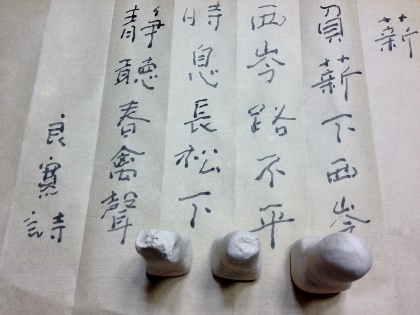 薪
負薪下西岑
西岑路不平
時息長松下
靜聴春禽聲
良寛詩